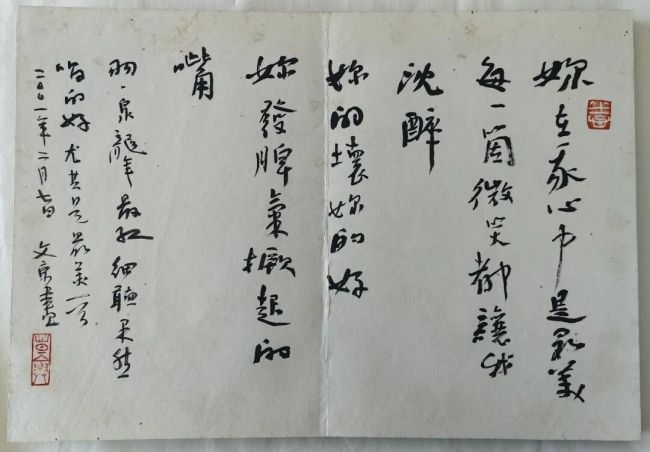 妳在我心中是最美
每一箇微笑都讓我
沈醉
妳的壞妳的好
妳發脾氣撅起的
嘴
羽·泉龍年最紅細聽果然
唱的好尤其是最美一首
二〇〇一年二月七日 文京書